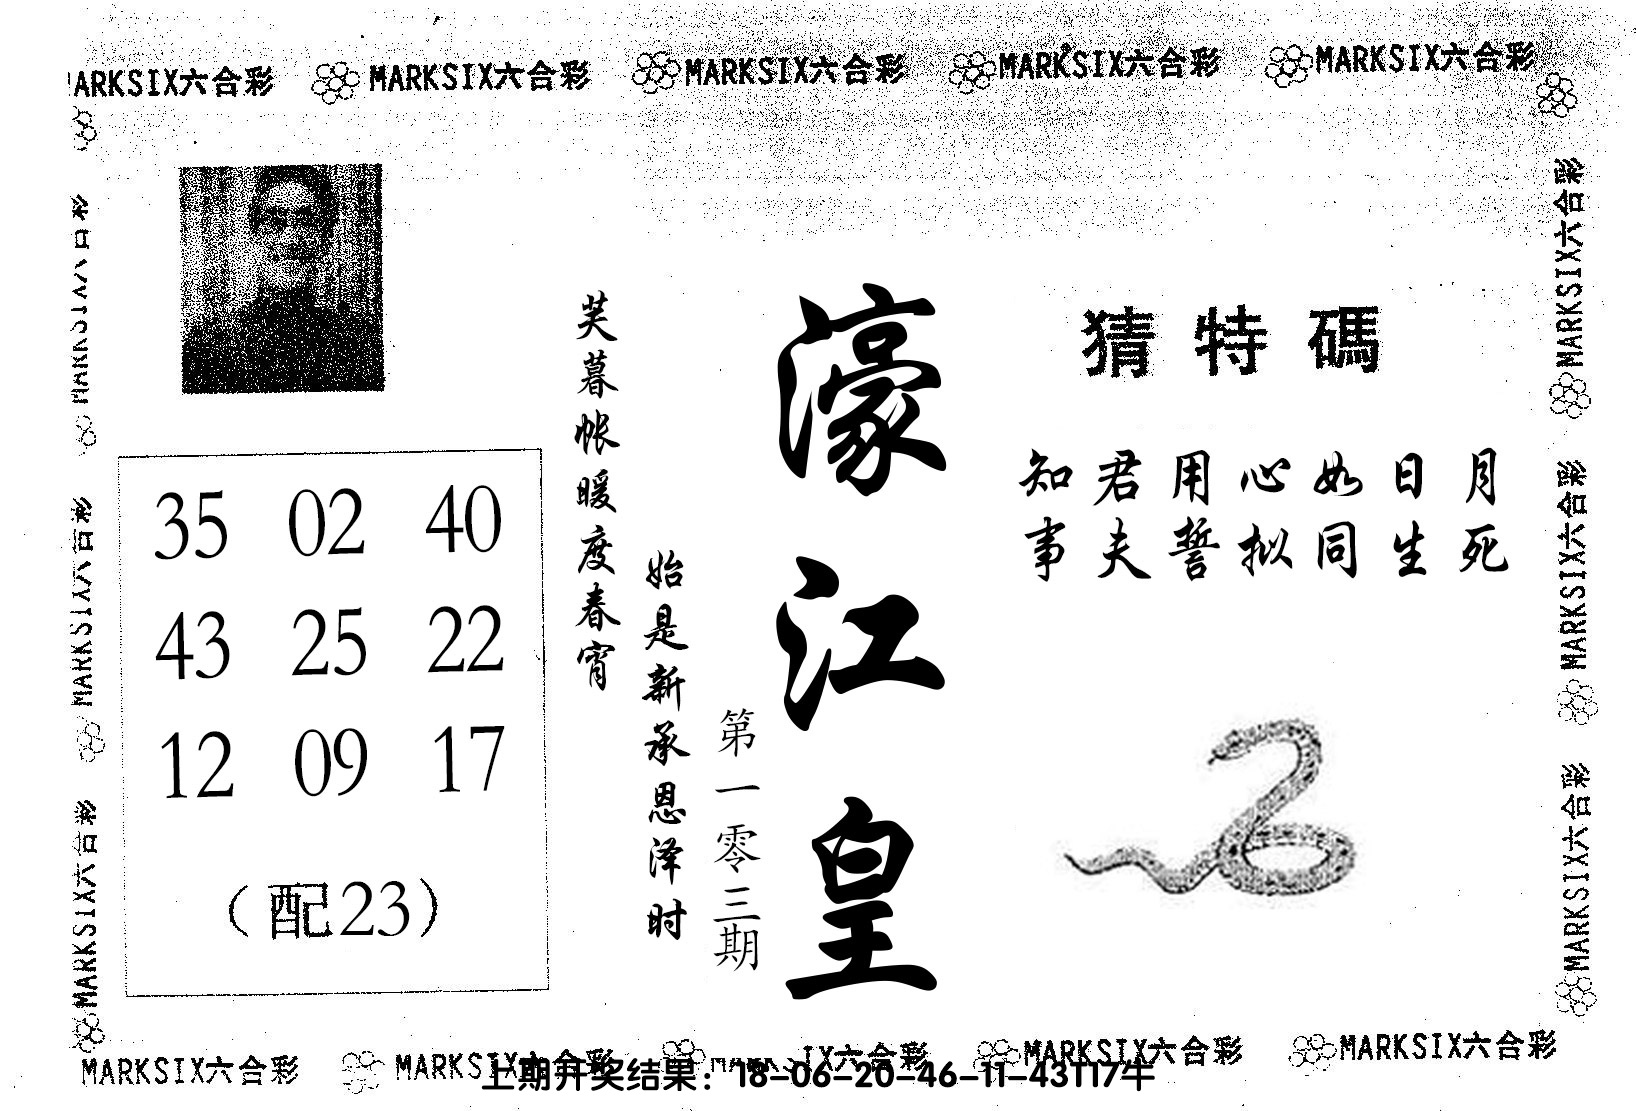 MARKSIX六合彩 MARKSIX六合彩 MARKSIX六合彩 MARKSIX六合彩
猜特碼
知君用心如日月
事夫誓拟同生死
濠江皇
第一零三期
始是新承恩泽时
芙暮帐暖度春宵
35 02 40
43 25 22
12 09 17
(配23)
MARKSIX六合彩
MARKSIX六合彩
MARKSIX六合彩
MARKSIX六合彩
MARKSIX六合彩
MARKSIX六合彩 MARKSIX六合彩 MARKSIX六合彩 MARKSIX六合彩
上期开奖结果：18-06-20-46-11-43T17牛